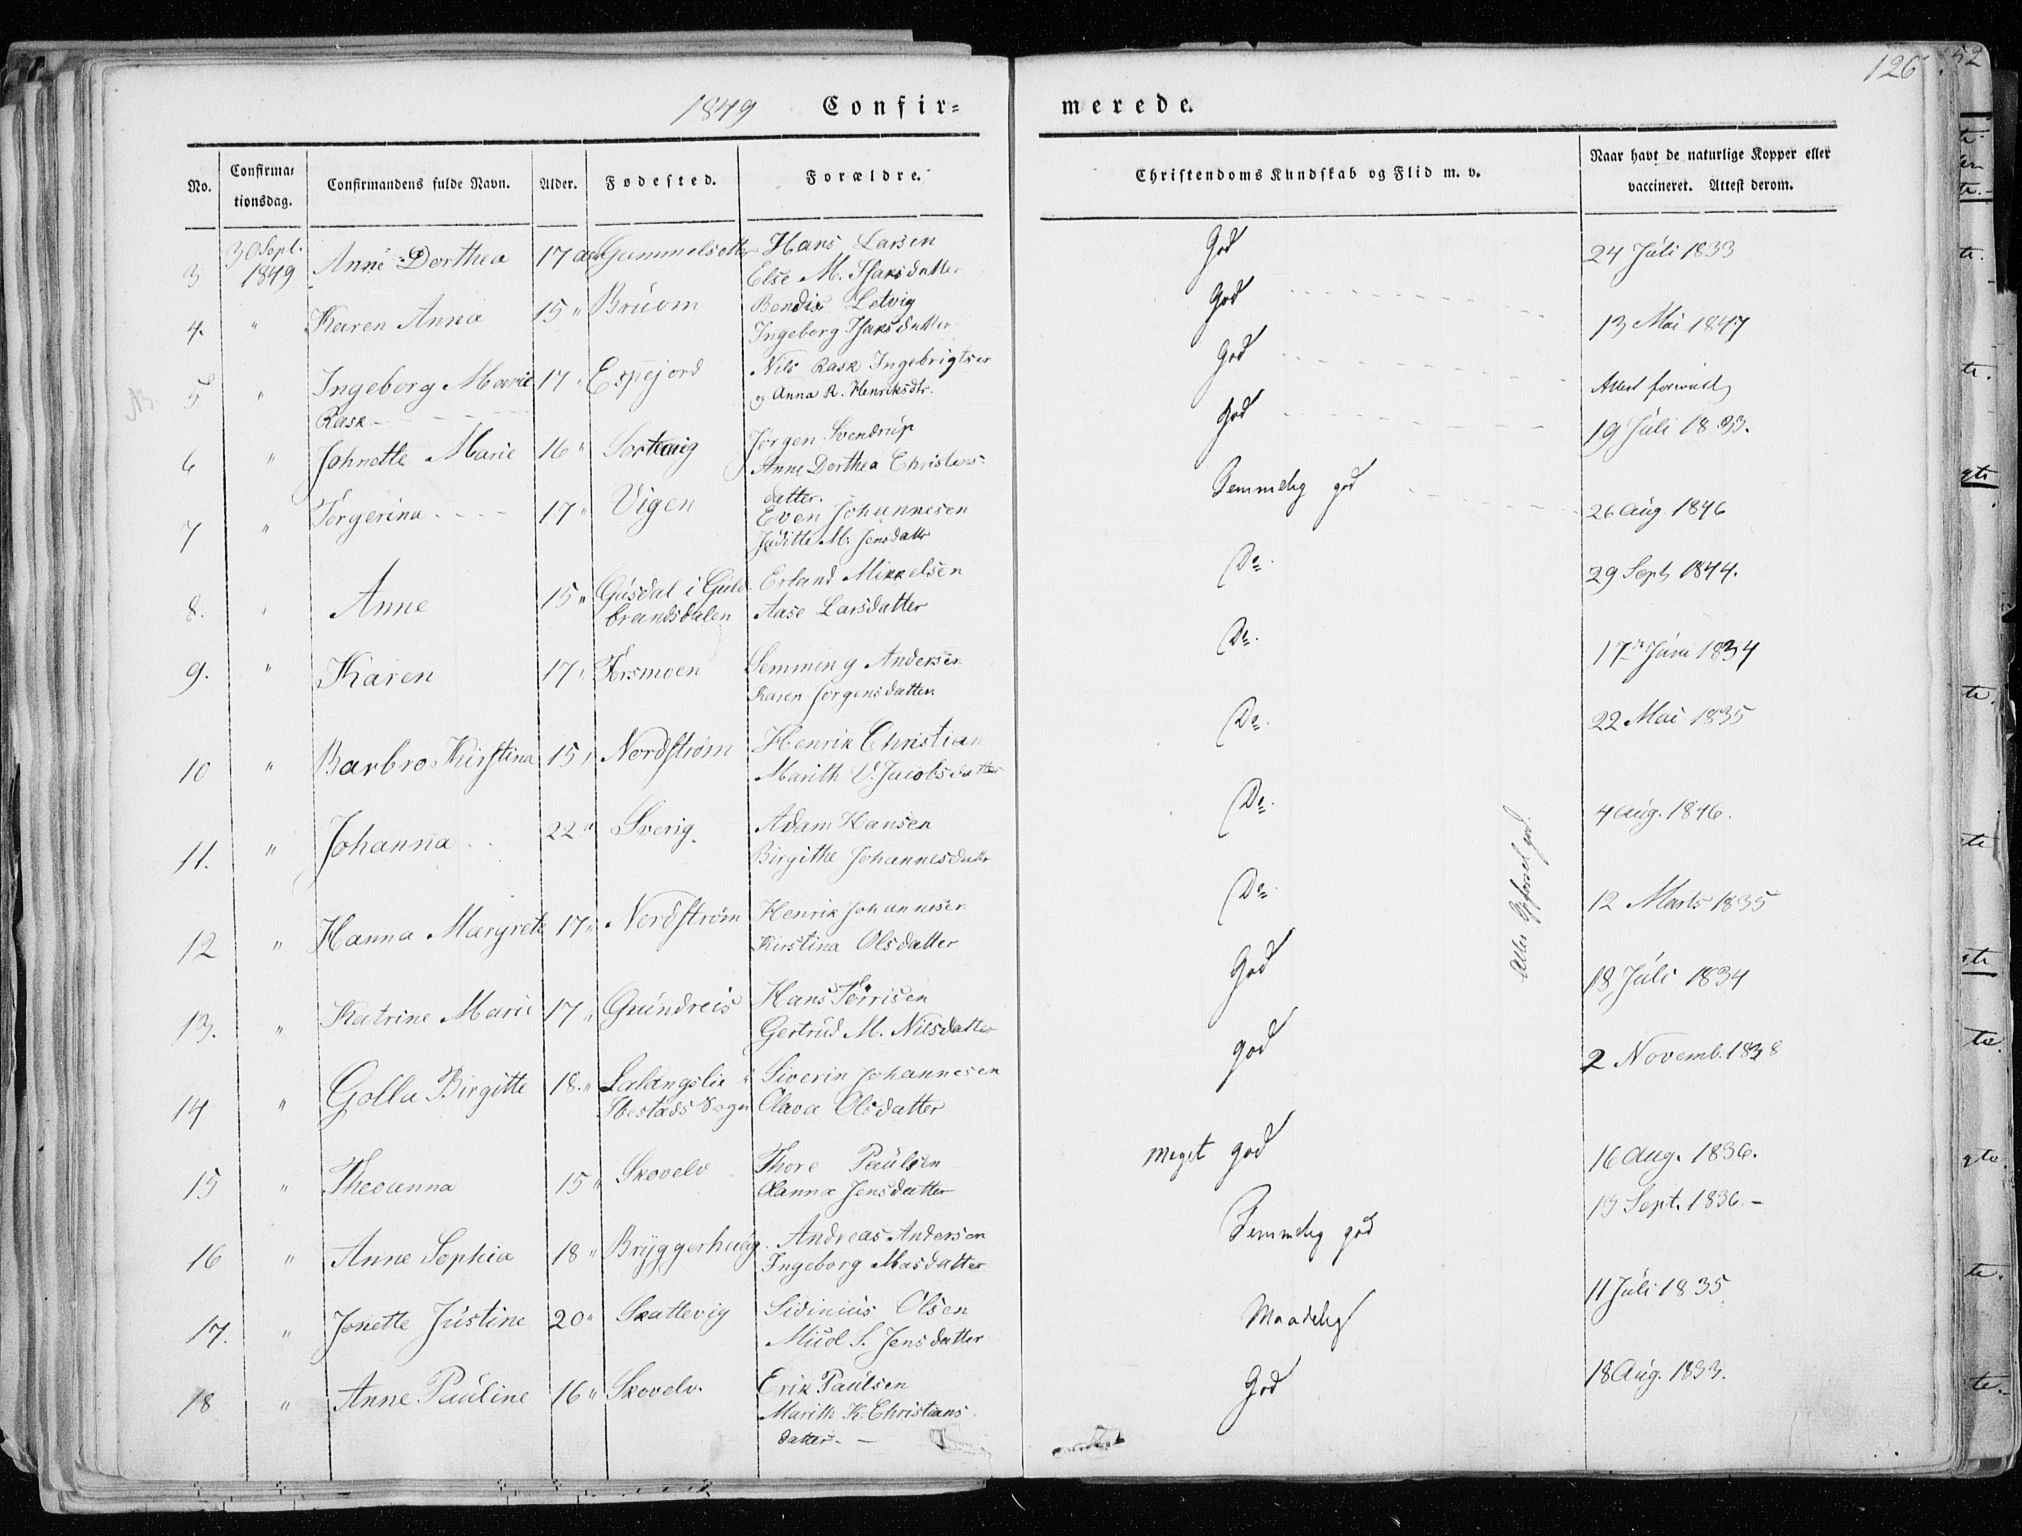 1849 Confir=
merede.
126
No.
Confirma=
tionsdag.
Confirmandens fulde Navn.
Alder.
Fødested.
Forældre.
Christendoms Kundskab og Flid m. v.
Naar havt de naturlige Kopper eller
vaccineret. Attest derom.
3 30 Sept. 1849 Anne Dorthea 17 Gammelsæter Hans Larsen God 24 Juli 1833
Else M. Isaksdatter
4. " Karen Anna 15 " Bruom Bendix Letvig God 13 Mai 1847
Ingeborg Isaksdatter
5 " Ingeborg Marie 17 " Espejord Nils Rask Ingebrigtsen God Attest
Rask og Anna R. Henriksdtr.
6 " Johnette Marie 16 " Jørgen Svendrup God 19 Juli 1833.
Anne Dorthea Christens=
datter.
7 " Torgerina 17 " Vigen Even Johannesen Temmelig god 26 Aug 1846
Juditte M. Jensdattr
8. " Anne 15 " Gusdal i Guld Erland Mikkelsen Do. 29 Sept 1844.
brandsdalen Aase Larsdatter
9. " Karen 17 " Forsmoen Semming Andersen Do. 17 Juni 1834
Karen Jørgensdatter
10 " Barbro Kirstina 15 " Nordstrøm Henrik Christian Do. 22 Mai 1835
Marith V. Jacobsdatter
11. " Johanna 22 " Sverig Adam Hansen Do. 4 Aug. 1846.
Birgithe Johannesdattr
12 " Hanna Margrete 17 " Nordstrøm Henrik Johannesen Do. 12 Marts 1835
Kirstina Olsdatter
13. " Katrine Marie 17 " Grundreis Hans Torrisen God 18 Juli 1834
Gertrud M. Nilsdatter
14 " Golla Birgitte 18 " Salangslie i Siverin Johannesen god 2 Novemb. 1838
Ibestads Sogn Olava Olsdatter
15 " Theoanna 15 " Skovelv Thore Paulsen Meget god 16 Aug. 1836.
Hanna Jensdatter
16 " Anne Sophia 18 " Bryggerhaug Andreas Andersen Temmelig god 13 Sept. 1836 -
Ingeborg Masdatter
17. " Jonette Justine 20 " Skattevig Sidinius Olsen Maadelig 11 Juli 1835
S. Jensdatter
18 " Anne Pauline 16 " Skovelv. Erik Paulsen God 18 Aug. 1833.
Marith K. Christians
datter. -
Alles Opførsel god.